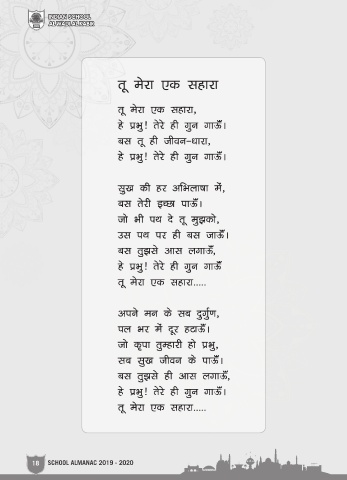 INDIAN SCHOOL
AL WADI AL KABIR
तू मेरा एक सहारा
तू मेरा एक सहारा,
हे प्रभु! तेरे ही गुन गाऊँ।
बस तू ही जीवन-धारा,
हे प्रभु! तेरे ही गुन गाऊँ।
सुख की हर अभिलाषा में,
बस तेरी इच्छा पाऊँ।
जो भी पथ दे तू मुझको,
उस पथ पर ही बस जाऊँ।
बस तुझसे आस लगाऊँ,
हे प्रभु! तेरे ही गुन गाऊँ
तू मेरा एक सहारा.....
अपने मन के सब दुर्गुण,
पल भर में दूर हटाऊँ।
जो कृपा तुम्हारी हो प्रभु,
सब सुख जीवन के पाऊँ।
बस तुझसे ही आस लगाऊँ,
हे प्रभु! तेरे ही गुन गाऊँ।
तू मेरा एक सहारा.....
18 SCHOOL ALMANAC 2019 - 2020